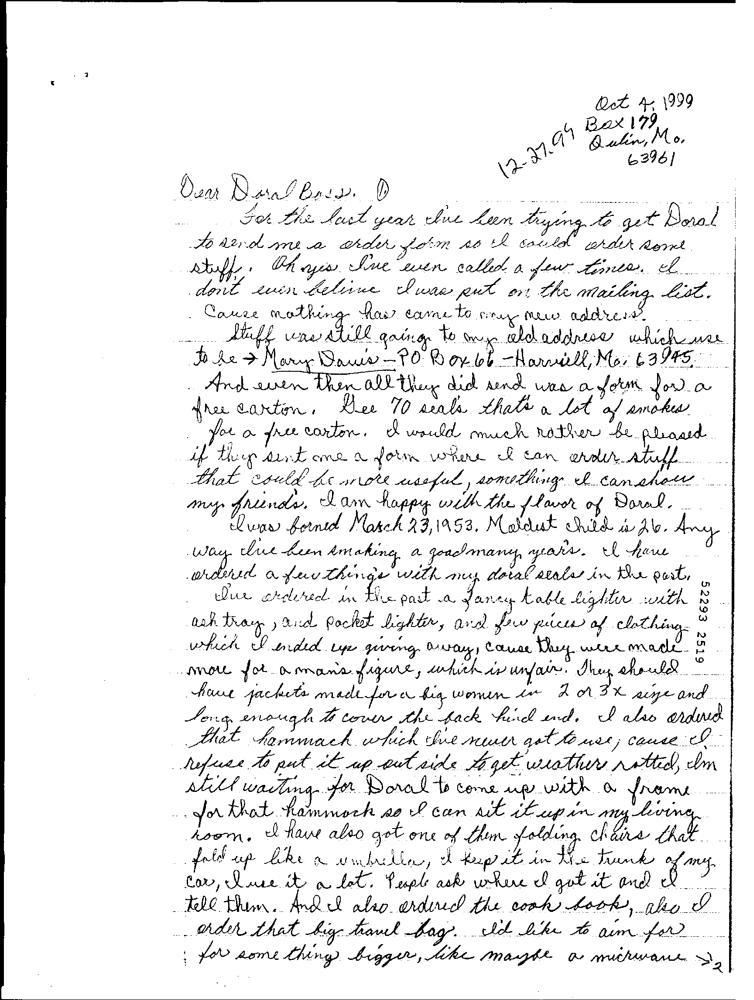 Oct 4, 1999
Box 179
Qulin, Mo.
63961
12-27-99
Dear Doral Boss. ①
For the last year I've been trying to get Doral
to send me a order form so I could order some
stuff. Oh yes I've even called a few times. I
don't even belive I was put on the mailing list.
Cause nothing has came to my new address.
Stuff was still going to my old address which use
to be → Mary Davis - PO Box 66 - Harviell, Mo. 63945.
And even then all they did send was a form for a
free carton. Gee 70 seals that's a lot of smokes
for a free carton. I would much rather be pleased
if they sent me a form where I can order stuff
that could be more useful, something I can show
my friends. I am happy with the flavor of Doral.
I was borned March 23, 1953. My oldest child is 26. Any
way I've been smoking a good many years. I have
ordered a few things with my doral seals in the past.
I've ordered in the past a fancy table lighter with
ash tray, and pocket lighter, and few pieces of clothing
which I ended up giving away, cause they were made
more for a man's figure, which is unfair. They should
have jackets made for a big women in 2 or 3x size and
long enough to cover the back hind end. I also ordered
that hammock which I've never got to use, cause I
refuse to put it up out side to get weather rotted, I'm
still waiting for Doral to come up with a frame
for that hammock so I can sit it up in my living
room. I have also got one of them folding chairs that
fold up like a umbrella, I keep it in the trunk of my
car, I use it a lot. People ask where I got it and I
tell them. And I also ordered the cook book, also I
order that big travel bag. I'd like to aim for
for something bigger, like maybe a microwave → 2
52293 2519